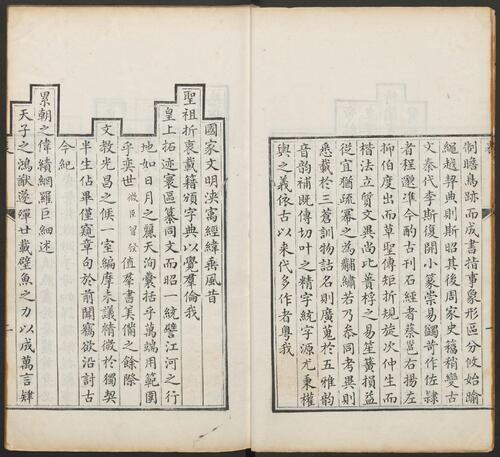 制瞻鳥跡而成書指事象形區分攸始踰
繩越契典則斯昭其後周家史籀稍變古
文秦代李斯復開小篆崇易蠲苛作佐隸
者程邈準今酌古刊石經者蔡邕右揚左
抑伯度出而草聖傳矩折規旋次仲生而
楷法立質文異尚比蕢桴之易笙簧損益
從宜猶疏冪之為黼黻若乃參同考異則
悉載於三蒼訓物詁名則廣蒐於五雅韵
音韵補既傳切叶之精字統字源尤秉權
輿之義依古以來代多作者粵我
國家文明浹㝢經緯乘風昔
聖祖折衷載籍頒字典以覺羣倫我
皇上拓迹寰區纂同文而昭一統譬江河之行
地如日月之麗天洵囊括乎萬端用範圍
乎奕世微臣習發值羣書美備之餘際
文教光昌之候一室編摩未議精微於獨契
半生佔畢僅窺章句於前聞竊欲沿討古
今紀
累朝之偉績網羅巨細述
天子之鴻猷遂殫廿載壁魚之力以成萬言肆